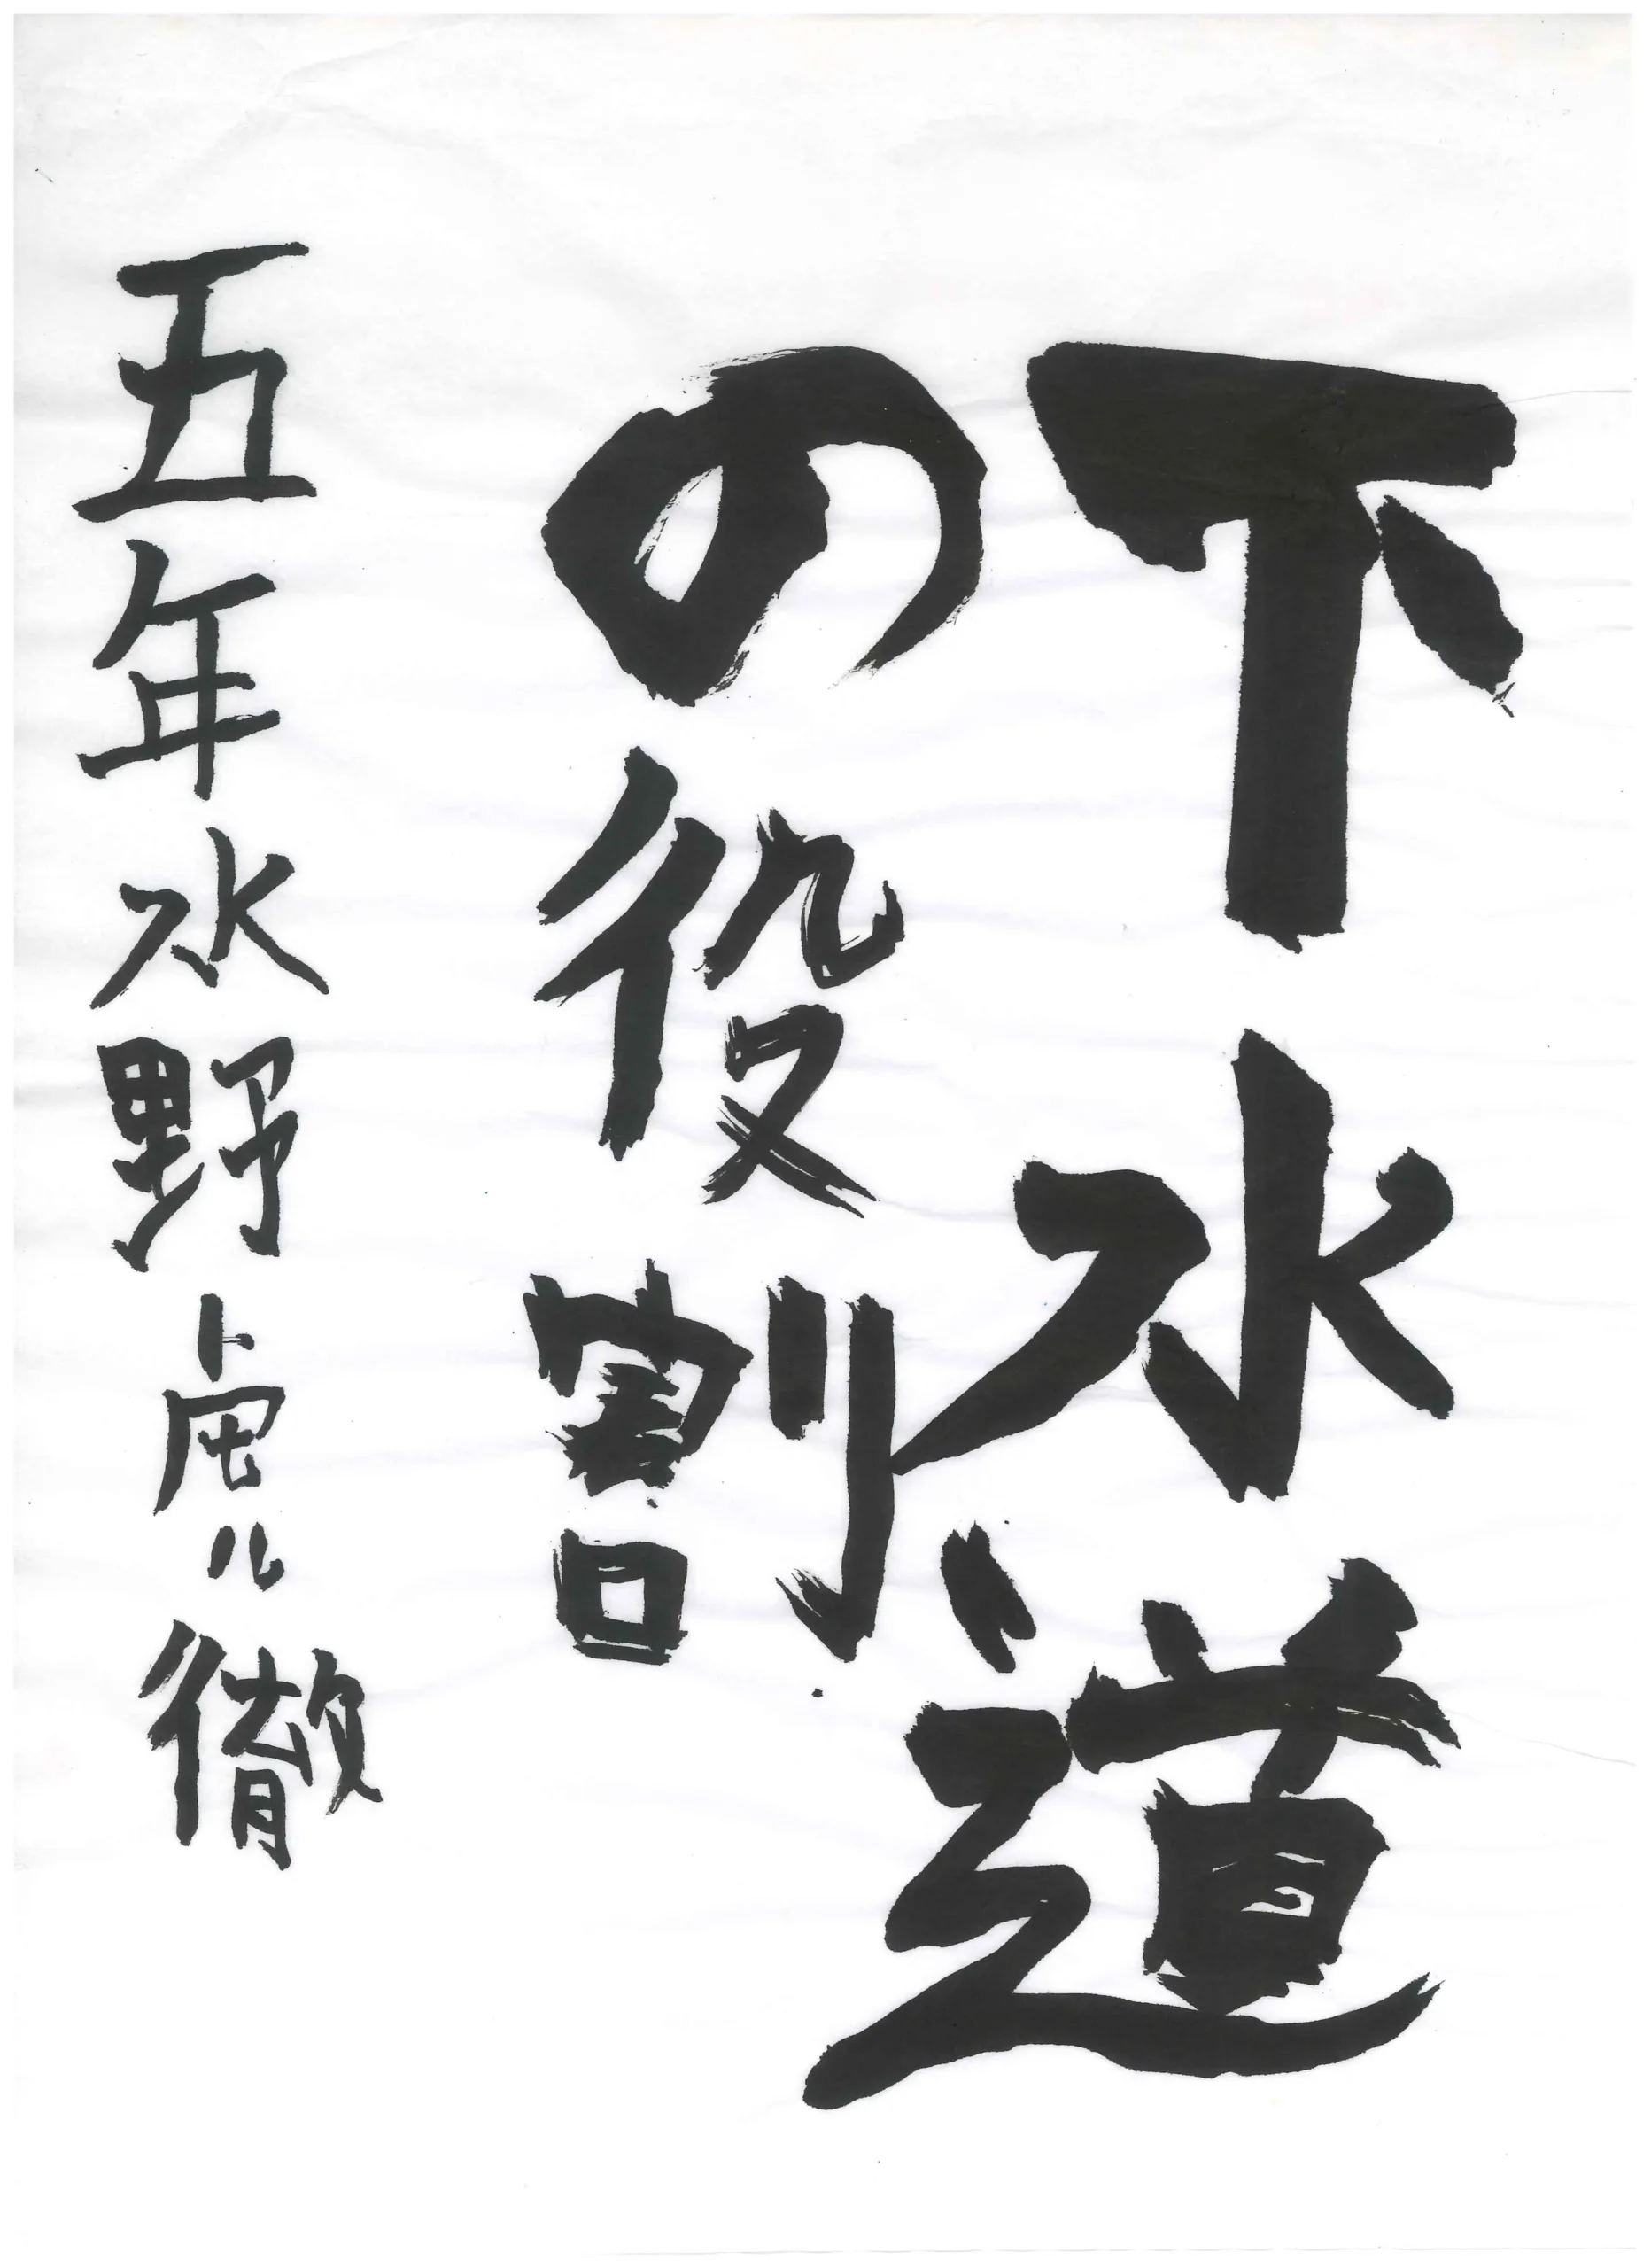 下水道
の役割
五年水野虎徹